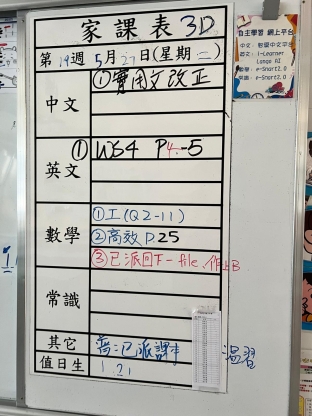 家課表 3D
第 14 週 5月27日(星期二)
中文 ①實用文改正
英文 ① WS4 P4-5
數學 ①工(Q2-11)
②高效 P.25
③已派回下一file、作上B
常識
其它 齊:已派課
溫習
值日生 1. 21
自主學習 網上平台
中文:智愛中文平台
英文:i-Learner
數學:e-Smart2.0
常識:e-Smart2.0